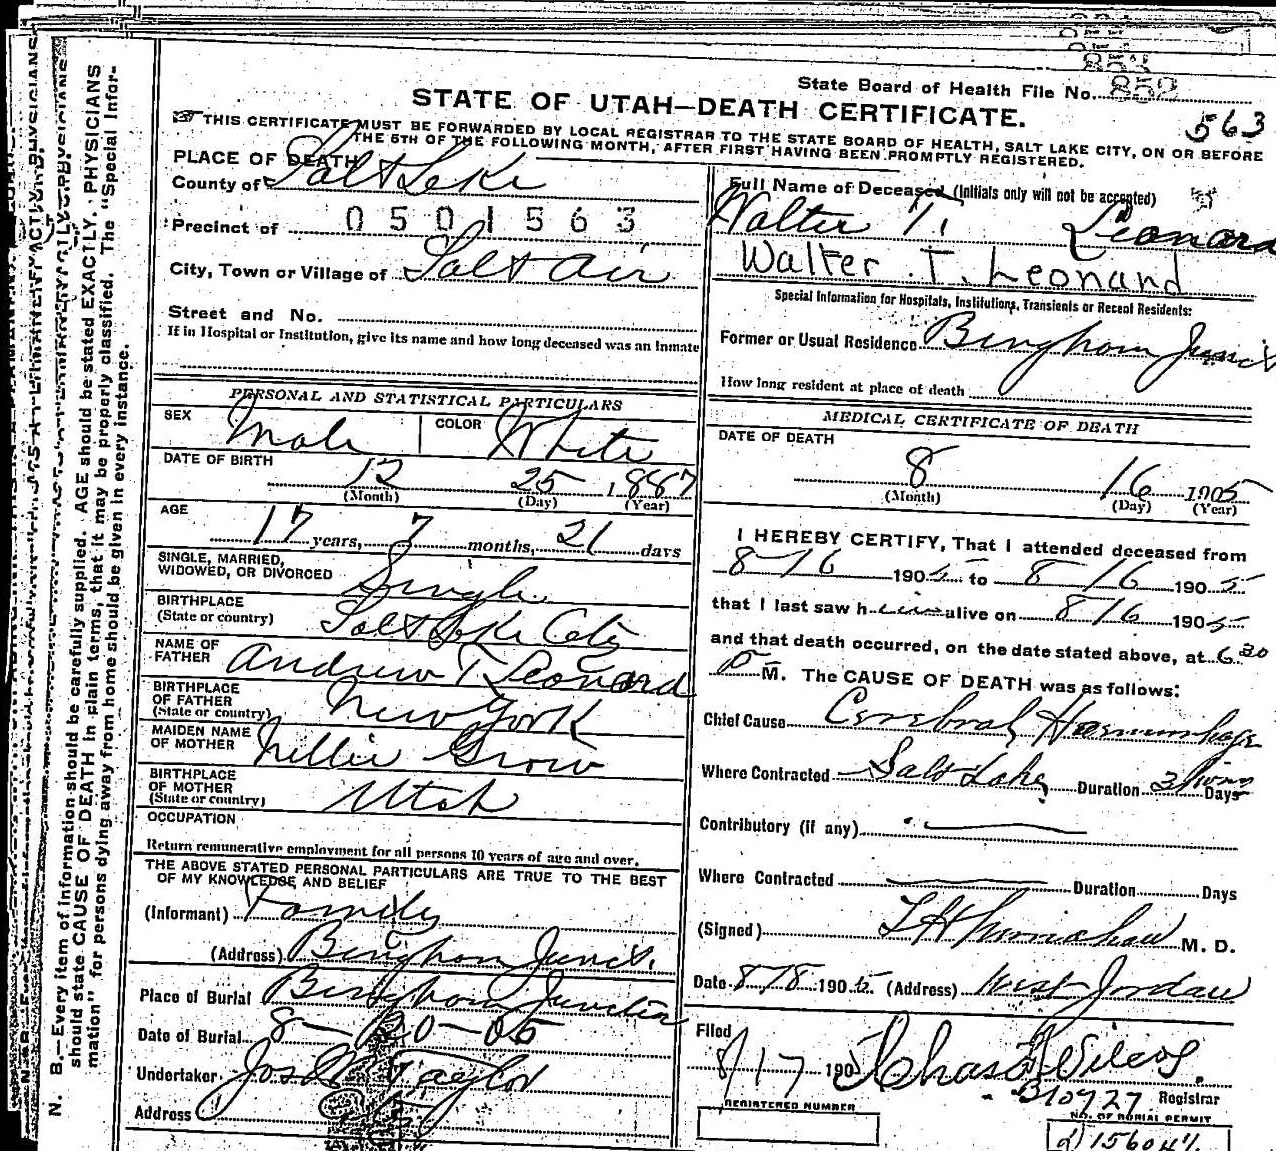 State Board of Health File No. 852
853
563
STATE OF UTAH—DEATH CERTIFICATE.
THIS CERTIFICATE MUST BE FORWARDED BY LOCAL REGISTRAR TO THE STATE BOARD OF HEALTH, SALT LAKE CITY, ON OR BEFORE
THE 5TH OF THE FOLLOWING MONTH, AFTER FIRST HAVING BEEN PROMPTLY REGISTERED.
PLACE OF DEATH
County of Salt Lake
Precinct of 0501563
City, Town or Village of Salt Air
Street and No.
If in Hospital or Institution, give its name and how long deceased was an Inmate
PERSONAL AND STATISTICAL PARTICULARS
SEX Male COLOR White
DATE OF BIRTH 12 25 1887
(Month) (Day) (Year)
AGE
17 years, 7 months, 21 days
SINGLE, MARRIED,
WIDOWED, OR DIVORCED Single
BIRTHPLACE
(State or country) Salt Lake City
NAME OF
FATHER Andrew T. Leonard
BIRTHPLACE
OF FATHER
(State or country) New York
MAIDEN NAME
OF MOTHER Nellie Grow
BIRTHPLACE
OF MOTHER
(State or country) Utah
OCCUPATION
Return remunerative employment for all persons 10 years of age and over.
THE ABOVE STATED PERSONAL PARTICULARS ARE TRUE TO THE BEST
OF MY KNOWLEDGE AND BELIEF
(Informant) Family
(Address) Bingham Junct.
Place of Burial Bingham Junction
Date of Burial 8-20-05
Undertaker Jos Wm Taylor
Address
Full Name of Deceased (Initials only will not be accepted)
Walter T. Leonard
Walter T. Leonard
Special Information for Hospitals, Institutions, Transients or Recent Residents:
Former or Usual Residence Bingham Junct
How long resident at place of death
MEDICAL CERTIFICATE OF DEATH
DATE OF DEATH
8 16 1905
(Month) (Day) (Year)
I HEREBY CERTIFY, That I attended deceased from
8-16 1905 to 8-16 1905
that I last saw him alive on 8 16 1905
and that death occurred, on the date stated above, at 6.30
P M. The CAUSE OF DEATH was as follows:
Chief Cause Cerebral Haemorrhage
Where Contracted Salt Lake Duration 3 hours Days
Contributory (if any)
Where Contracted Duration Days
(Signed) M. D.
Date 8-18 1905 (Address) West Jordan
Filed
8/17 190 Chas
B10727 Registrar
REGISTERED NUMBER
NO. OF BURIAL PERMIT
N. B.—Every item of information should be carefully supplied. AGE should be stated EXACTLY. PHYSICIANS
should state CAUSE OF DEATH in plain terms, that it may be properly classified. The "Special Infor-
mation" for persons dying away from home should be given in every instance.